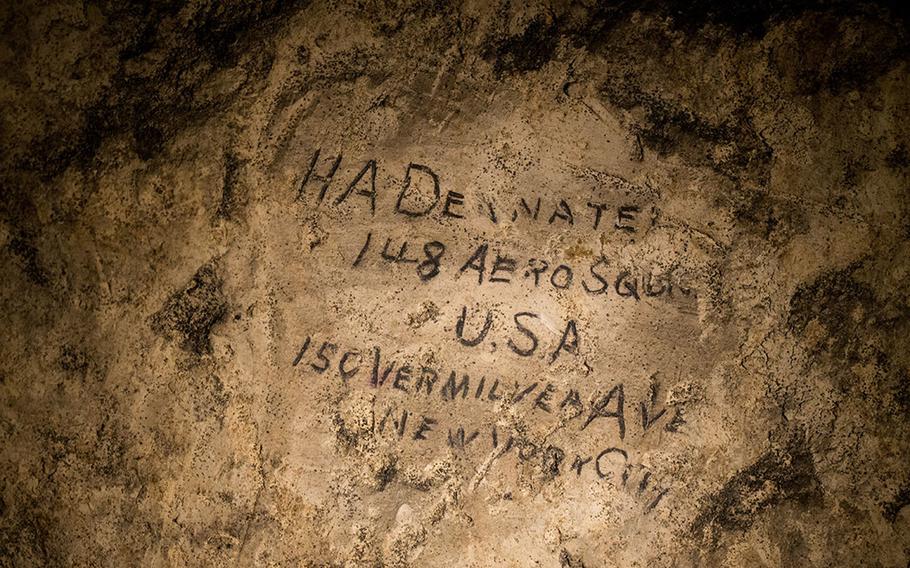 HA DEANNATE
148 AERO SQDN
U.S.A
150 VERMILYEA AVE
NEW YORK CITY